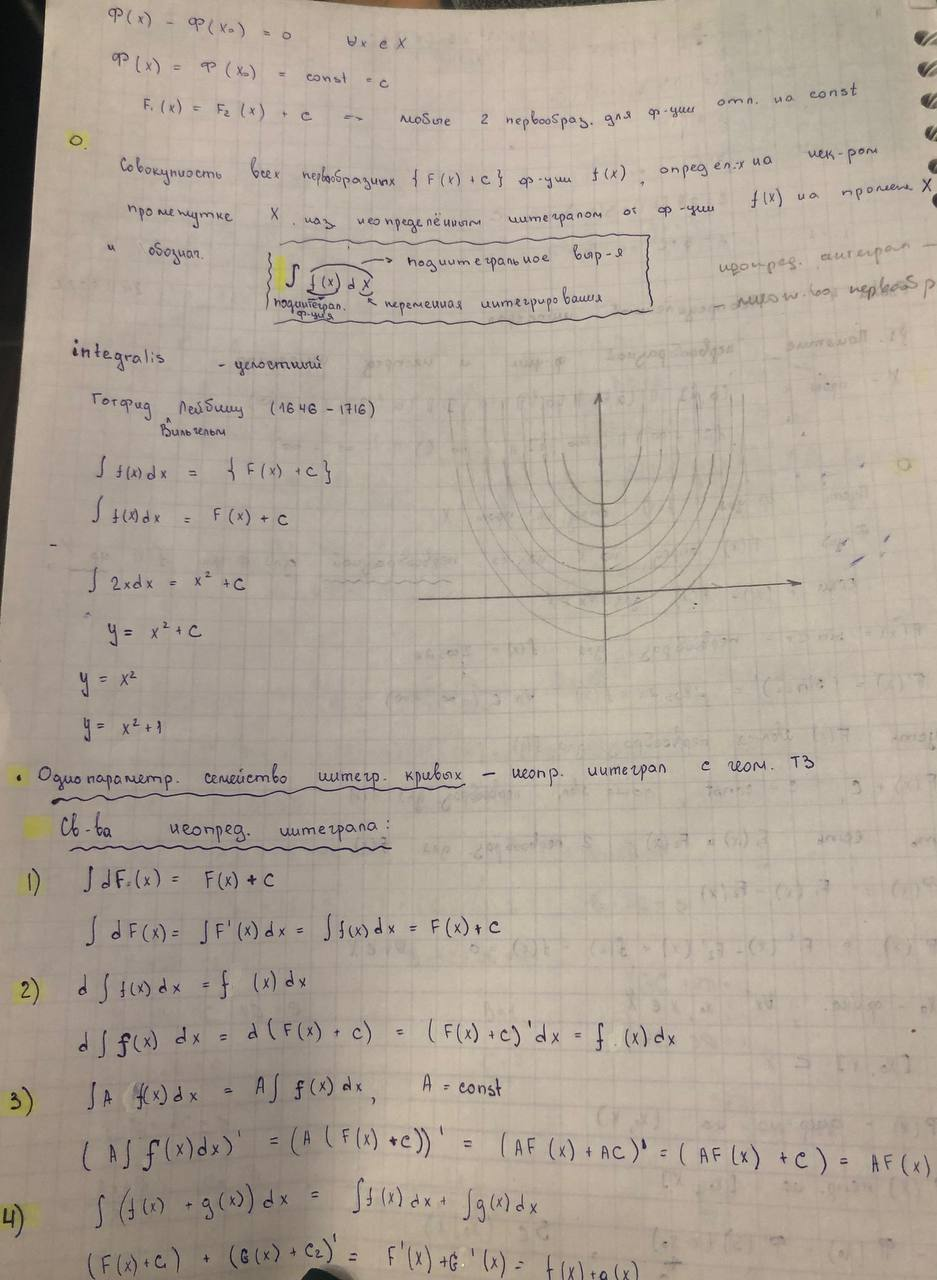 Φ(x) - Φ(x₀) = 0 ∀x ∈ X
Φ(x) = Φ(x₀) = const = c
F₁(x) = F₂(x) + c => любые 2 первообраз. для ф-ции отл. на const
О.
Совокупность всех первообразных {F(x) + c} ф-ции f(x), определ-х на нек-ром
промежутке X, наз неопределённым интегралом от ф-ции f(x) на промеж X
и обознач.
∫ f(x) dx → подинтегральное выр-я
подинтеграл. ф-ция
переменная интегрирования
integralis - целостный
Готфрид Лейбниц (1646 - 1716)
Вильгельм
∫ f(x)dx = {F(x) + c}
∫ f(x)dx = F(x) + c
∫ 2xdx = x² + c
y = x² + c
y = x²
y = x² + 1
• Однопараметр. семейство интегр. кривых – неопр. интеграл с геом. ТЗ
Св-ва неопред. интеграла:
1) ∫ dF(x) = F(x) + c
∫ dF(x) = ∫ F'(x)dx = ∫ f(x)dx = F(x) + c
2) d ∫ f(x)dx = f (x)dx
d ∫ f(x) dx = d(F(x) + c) = (F(x) + c)'dx = f (x)dx
3) ∫ A f(x)dx = A ∫ f(x)dx, A = const
(A ∫ f(x)dx)' = (A (F(x) + c))' = (AF(x) + AC)' = (AF(x) + c) = AF(x)
4) ∫ (f(x) + g(x))dx = ∫ f(x)dx + ∫ g(x)dx
(F(x) + C₁) + (G(x) + C₂)' = F'(x) + G'(x) = f(x) + g(x)